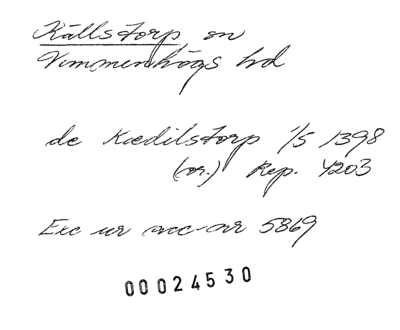 Källstorp sn
Vemmenhögs hd
de Kædilstorp 1/5 1398
(or.) Rep. 4203
Exc ur acc-nr 5869
00024530